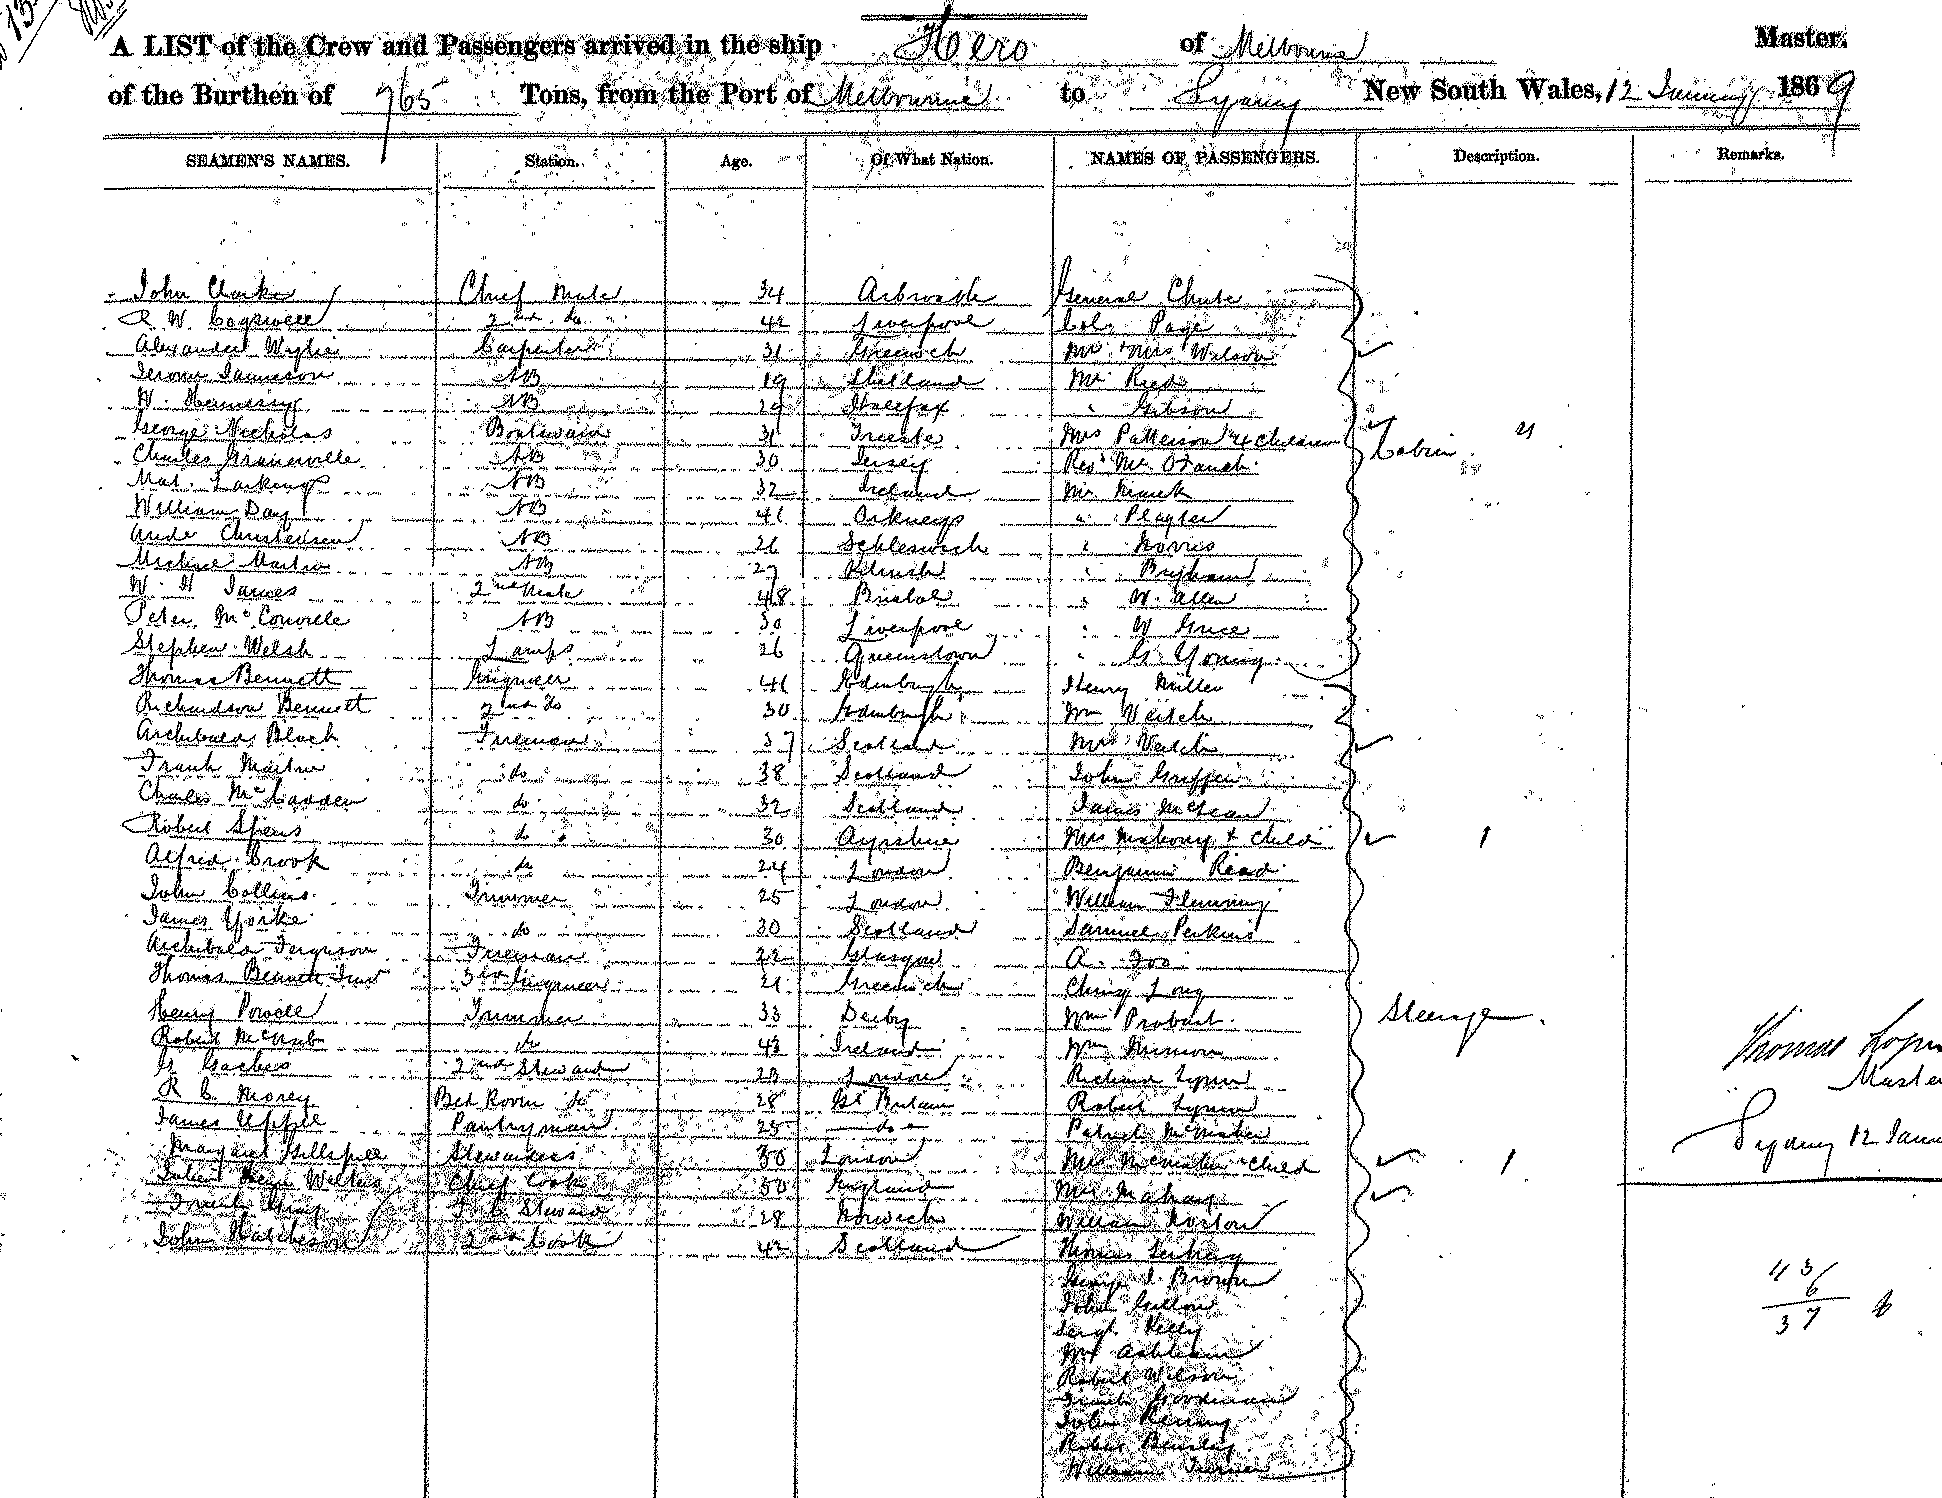 A LIST of the Crew and Passengers arrived in the ship Hero of Melbourne Master.
of the Burthen of 965 Tons, from the Port of Melbourne to Sydney New South Wales, 12 January 1869
SEAMEN'S NAMES. Station. Age. Of What Nation. NAMES OF PASSENGERS. Description. Remarks.
John Clarke Chief Mate 34 Arbroath General Chute
R W. Cogswell 2nd do 42 Liverpool Col. Page
Alexander Wylie Carpenter 31 Greenock Mr & Mrs Wilson
Jerome Jamieson AB 19 Shetland Mr Reed
W. Hennessy AB 29 Halifax " Gibson
George Nicholas Boatswain 31 Trieste Mrs Patterson & 4 Children Cabin 4
Charles AB 30 Jersey Revd Mr
Mat. Larkings AB 32 Ireland Mr
William Day AB 41 Orkneys " Playter
Christensen AB 26 Schleswich " Norris
Michael Martin AB 27 " Brigham
W. H James 2nd Mate 48 Bristol " W. Allen
Peter McConvele AB 30 Liverpool " W Grice
Stephen Welsh Lamps 26 Queenstown " G. Young
Thomas Bennett Engineer 41 Edenburgh Henry Miller
Richardson Bennett 2nd do 30 Edenburgh Wm Veitch
Archibald Black Fireman 37 Scotland Mrs Veitch
Frank Martin do 38 Scotland John Griffin
Charles McCadden do 32 Scotland James McLean
Robert Spiers do 30 Ayrshire Mrs Mahony & Child 1
Alfred Crook do 24 London Benjamin Read
John Collins Trimmer 25 London William Flemming
James Yorke do 30 Scotland Samuel Perkins
Archibald Ferguson Fireman 22 Glasgow A. Foo
Thomas Bennett Junr 3rd Engineer 21 Greenwich Ching Long
Henry Powell Trimmer 33 Derby Wm Probert Steerage
Robert McCrub do 43 Ireland Wm
G 2nd Steward 23 London Richard Tynon
R C Morey Bed Room do 28 Gt Britain Robert Tynon
James Uppill Pantryman 25 do Patrick McMahon
Margaret Gillespie Stewardess 30 London Mrs McMahon & Child 1
Henri Walters Chief Cook 50 England Mrs Mahony
Gray F. C. Steward 28 Norwich William Norton
John Hutcheson 2nd Cook 42 Scotland Thomas
George J. Brown
John Gillow
Sergt. Kelly
Mr
Robert Wilson
Frank Goodman
John Kenny
Robert Beasley
William Turner
Thomas Logan
Master
Sydney 12 Janu
43
6
37